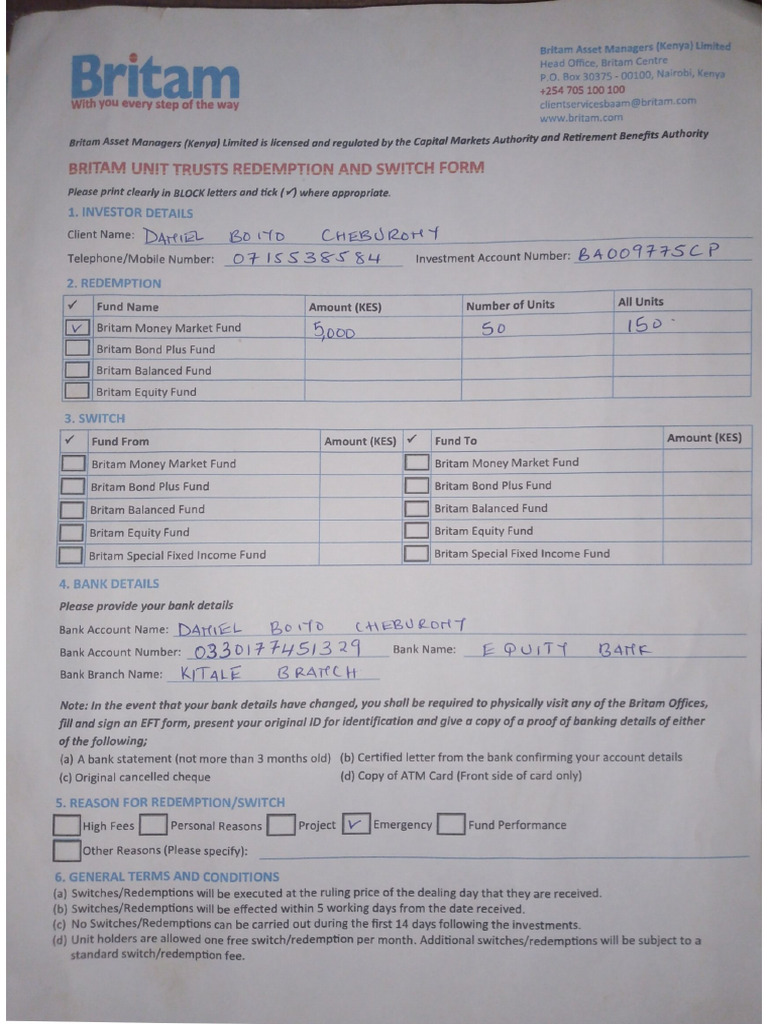 Britam
With you every step of the way
Britam Asset Managers (Kenya) Limited
Head Office, Britam Centre
P.O. Box 30375 - 00100, Nairobi, Kenya
+254 705 100 100
clientservicesbaam@britam.com
www.britam.com
Britam Asset Managers (Kenya) Limited is licensed and regulated by the Capital Markets Authority and Retirement Benefits Authority
BRITAM UNIT TRUSTS REDEMPTION AND SWITCH FORM
Please print clearly in BLOCK letters and tick (✓) where appropriate.
1. INVESTOR DETAILS
Client Name: DANIEL BOIYO CHEBUROMY
Telephone/Mobile Number: 0715538584 Investment Account Number: BA009775CP
2. REDEMPTION
✓ Fund Name Amount (KES) Number of Units All Units
✓ Britam Money Market Fund 5,000 50 150
Britam Bond Plus Fund
Britam Balanced Fund
Britam Equity Fund
3. SWITCH
✓ Fund From Amount (KES) ✓ Fund To Amount (KES)
Britam Money Market Fund Britam Money Market Fund
Britam Bond Plus Fund Britam Bond Plus Fund
Britam Balanced Fund Britam Balanced Fund
Britam Equity Fund Britam Equity Fund
Britam Special Fixed Income Fund Britam Special Fixed Income Fund
4. BANK DETAILS
Please provide your bank details
Bank Account Name: DANIEL BOIYO CHEBUROMY
Bank Account Number: 0330177451329 Bank Name: EQUITY BANK
Bank Branch Name: KITALE BRANCH
Note: In the event that your bank details have changed, you shall be required to physically visit any of the Britam Offices,
fill and sign an EFT form, present your original ID for identification and give a copy of a proof of banking details of either
of the following;
(a) A bank statement (not more than 3 months old) (b) Certified letter from the bank confirming your account details
(c) Original cancelled cheque (d) Copy of ATM Card (Front side of card only)
5. REASON FOR REDEMPTION/SWITCH
High Fees Personal Reasons Project ✓ Emergency Fund Performance
Other Reasons (Please specify):
6. GENERAL TERMS AND CONDITIONS
(a) Switches/Redemptions will be executed at the ruling price of the dealing day that they are received.
(b) Switches/Redemptions will be effected within 5 working days from the date received.
(c) No Switches/Redemptions can be carried out during the first 14 days following the investments.
(d) Unit holders are allowed one free switch/redemption per month. Additional switches/redemptions will be subject to a
standard switch/redemption fee.